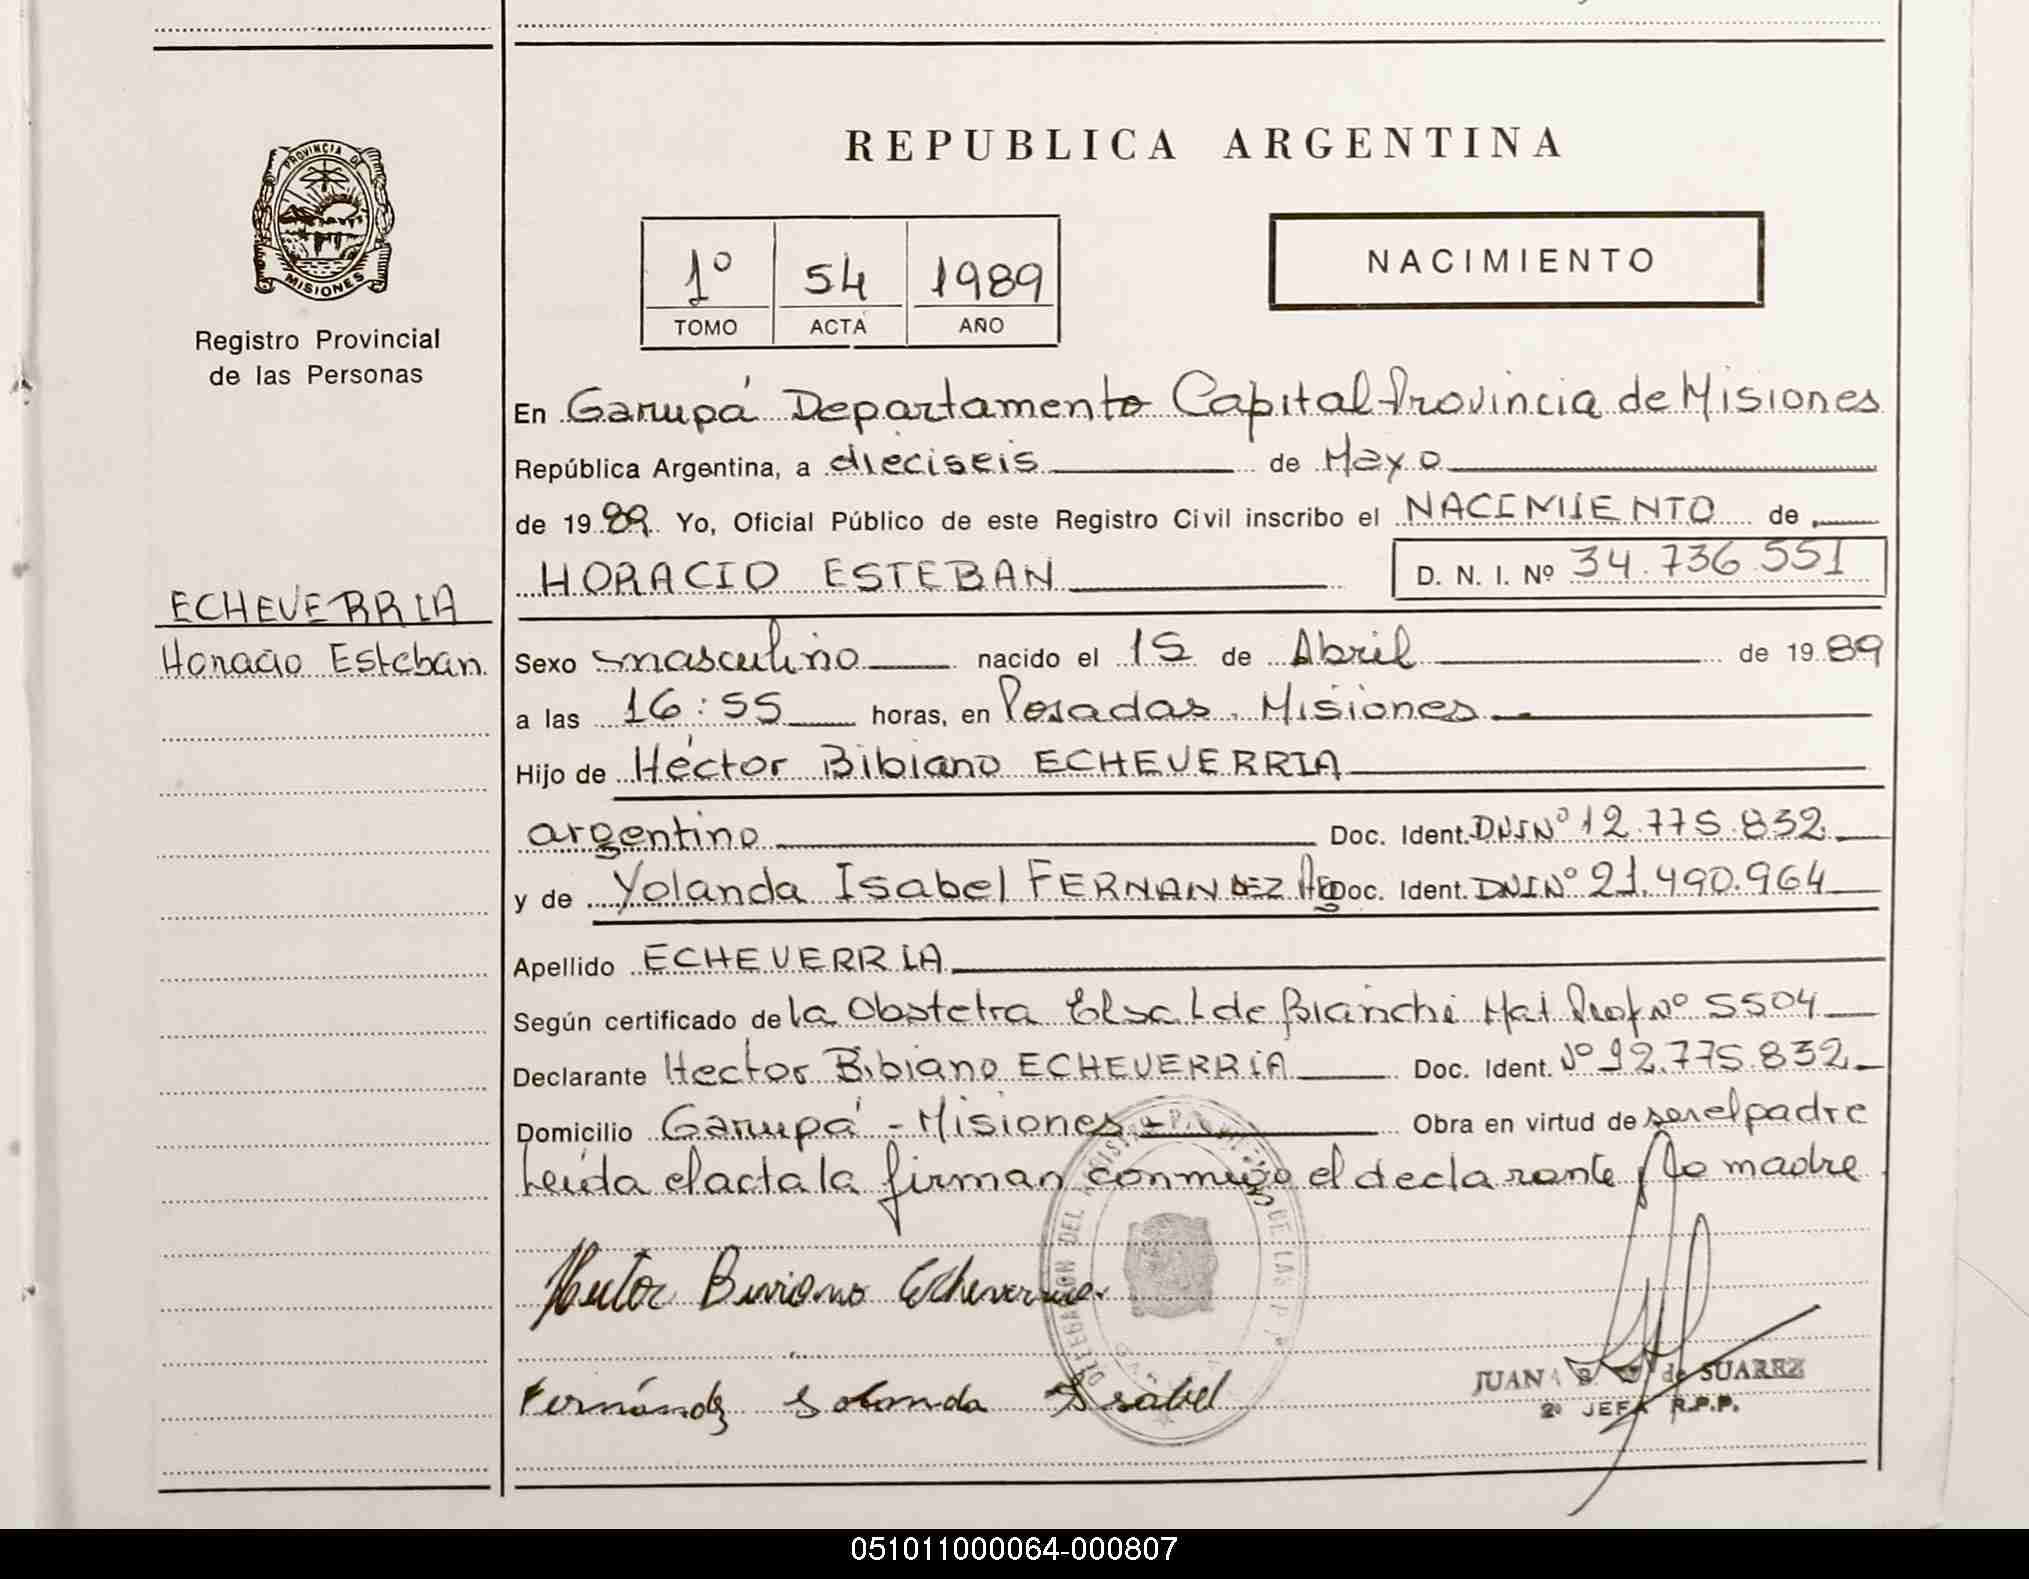 PROVINCIA DE
MISIONES
Registro Provincial
de las Personas
ECHEVERRIA
Horacio Esteban.
REPUBLICA ARGENTINA
1º 54 1989
TOMO ACTA AÑO
NACIMIENTO
En Garupá Departamento Capital Provincia de Misiones
República Argentina, a dieciseis de Mayo
de 1989 Yo, Oficial Público de este Registro Civil inscribo el NACIMIENTO de
HORACIO ESTEBAN D. N. I. Nº 34.736.551
Sexo masculino nacido el 15 de Abril de 1989
a las 16:55 horas, en Posadas. Misiones
Hijo de Héctor Bibiano ECHEVERRIA
argentino Doc. Ident. DNI Nº 12.775.832
y de Yolanda Isabel FERNANDEZ Arg Doc. Ident. DNI Nº 21.490.964
Apellido ECHEVERRIA
Según certificado de la Obstetra Elsa L de Bianchi Mat Prof Nº 5504
Declarante Hector Bibiano ECHEVERRIA Doc. Ident. Nº 12.775.832
Domicilio Garupá - Misiones - Obra en virtud de ser el padre
Leída el acta la firman conmigo el declarante y la madre
Hector Biviano Echeverria
DELEGACION DEL REGISTRO DE LAS
Fernández Yolanda Isabel
JUANA de SUAREZ
JEFA R.P.P.
051011000064-000807